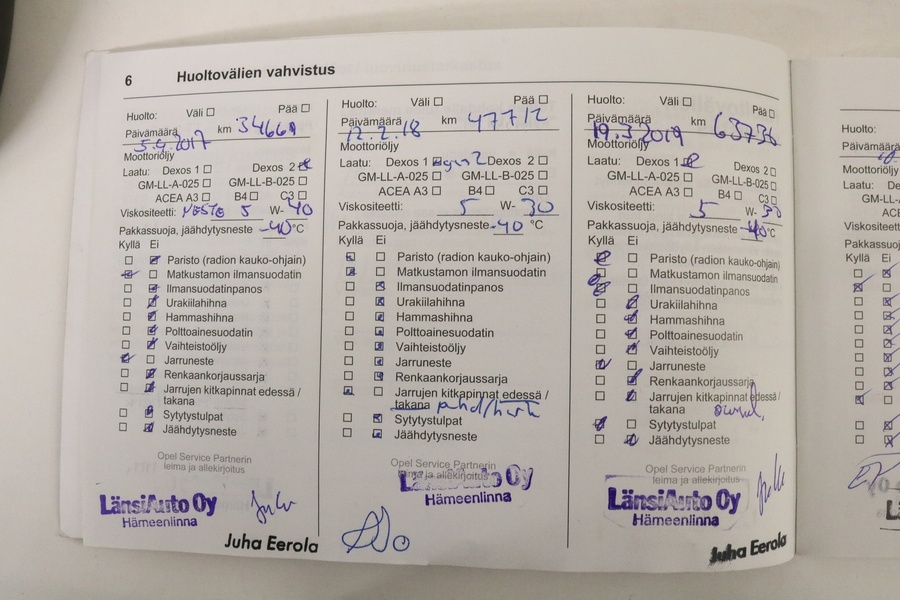 6 Huoltovälien vahvistus
Huolto: Väli Pää
Päivämäärä 5.4.2017 km 34661
Moottoriöljy
Laatu: Dexos 1 Dexos 2
GM-LL-A-025 GM-LL-B-025
ACEA A3 B4 C3
Viskositeetti: NESTE 5 W- 40
Pakkassuoja, jäähdytysneste -40 °C
Kyllä Ei
Paristo (radion kauko-ohjain)
Matkustamon ilmansuodatin
Ilmansuodatinpanos
Urakiilahihna
Hammashihna
Polttoainesuodatin
Vaihteistoöljy
Jarruneste
Renkaankorjaussarja
Jarrujen kitkapinnat edessä /
takana
Sytytystulpat
Jäähdytysneste
Opel Service Partnerin
leima ja allekirjoitus
LänsiAuto Oy
Hämeenlinna
Juha Eerola
Huolto: Väli Pää
Päivämäärä 12.2.18 km 47712
Moottoriöljy
Laatu: Dexos 1 Dexos 2
GM-LL-A-025 GM-LL-B-025
ACEA A3 B4 C3
Viskositeetti: 5 W- 30
Pakkassuoja, jäähdytysneste -40 °C
Kyllä Ei
Paristo (radion kauko-ohjain)
Matkustamon ilmansuodatin
Ilmansuodatinpanos
Urakiilahihna
Hammashihna
Polttoainesuodatin
Vaihteistoöljy
Jarruneste
Renkaankorjaussarja
Jarrujen kitkapinnat edessä /
takana
Sytytystulpat
Jäähdytysneste
Opel Service Partnerin
leima ja allekirjoitus
LänsiAuto Oy
Hämeenlinna
Huolto: Väli Pää
Päivämäärä 19.3.2019 km 63736
Moottoriöljy
Laatu: Dexos 1 Dexos 2
GM-LL-A-025 GM-LL-B-025
ACEA A3 B4 C3
Viskositeetti: 5 W- 30
Pakkassuoja, jäähdytysneste -40 °C
Kyllä Ei
Paristo (radion kauko-ohjain)
Matkustamon ilmansuodatin
Ilmansuodatinpanos
Urakiilahihna
Hammashihna
Polttoainesuodatin
Vaihteistoöljy
Jarruneste
Renkaankorjaussarja
Jarrujen kitkapinnat edessä /
takana
Sytytystulpat
Jäähdytysneste
Opel Service Partnerin
leima ja allekirjoitus
LänsiAuto Oy
Hämeenlinna
Juha Eerola
Huolto:
Päivämäärä
Moottoriöljy
Laatu:
GM-LL-
Viskositeetti:
Pakkassuoja
Kyllä Ei